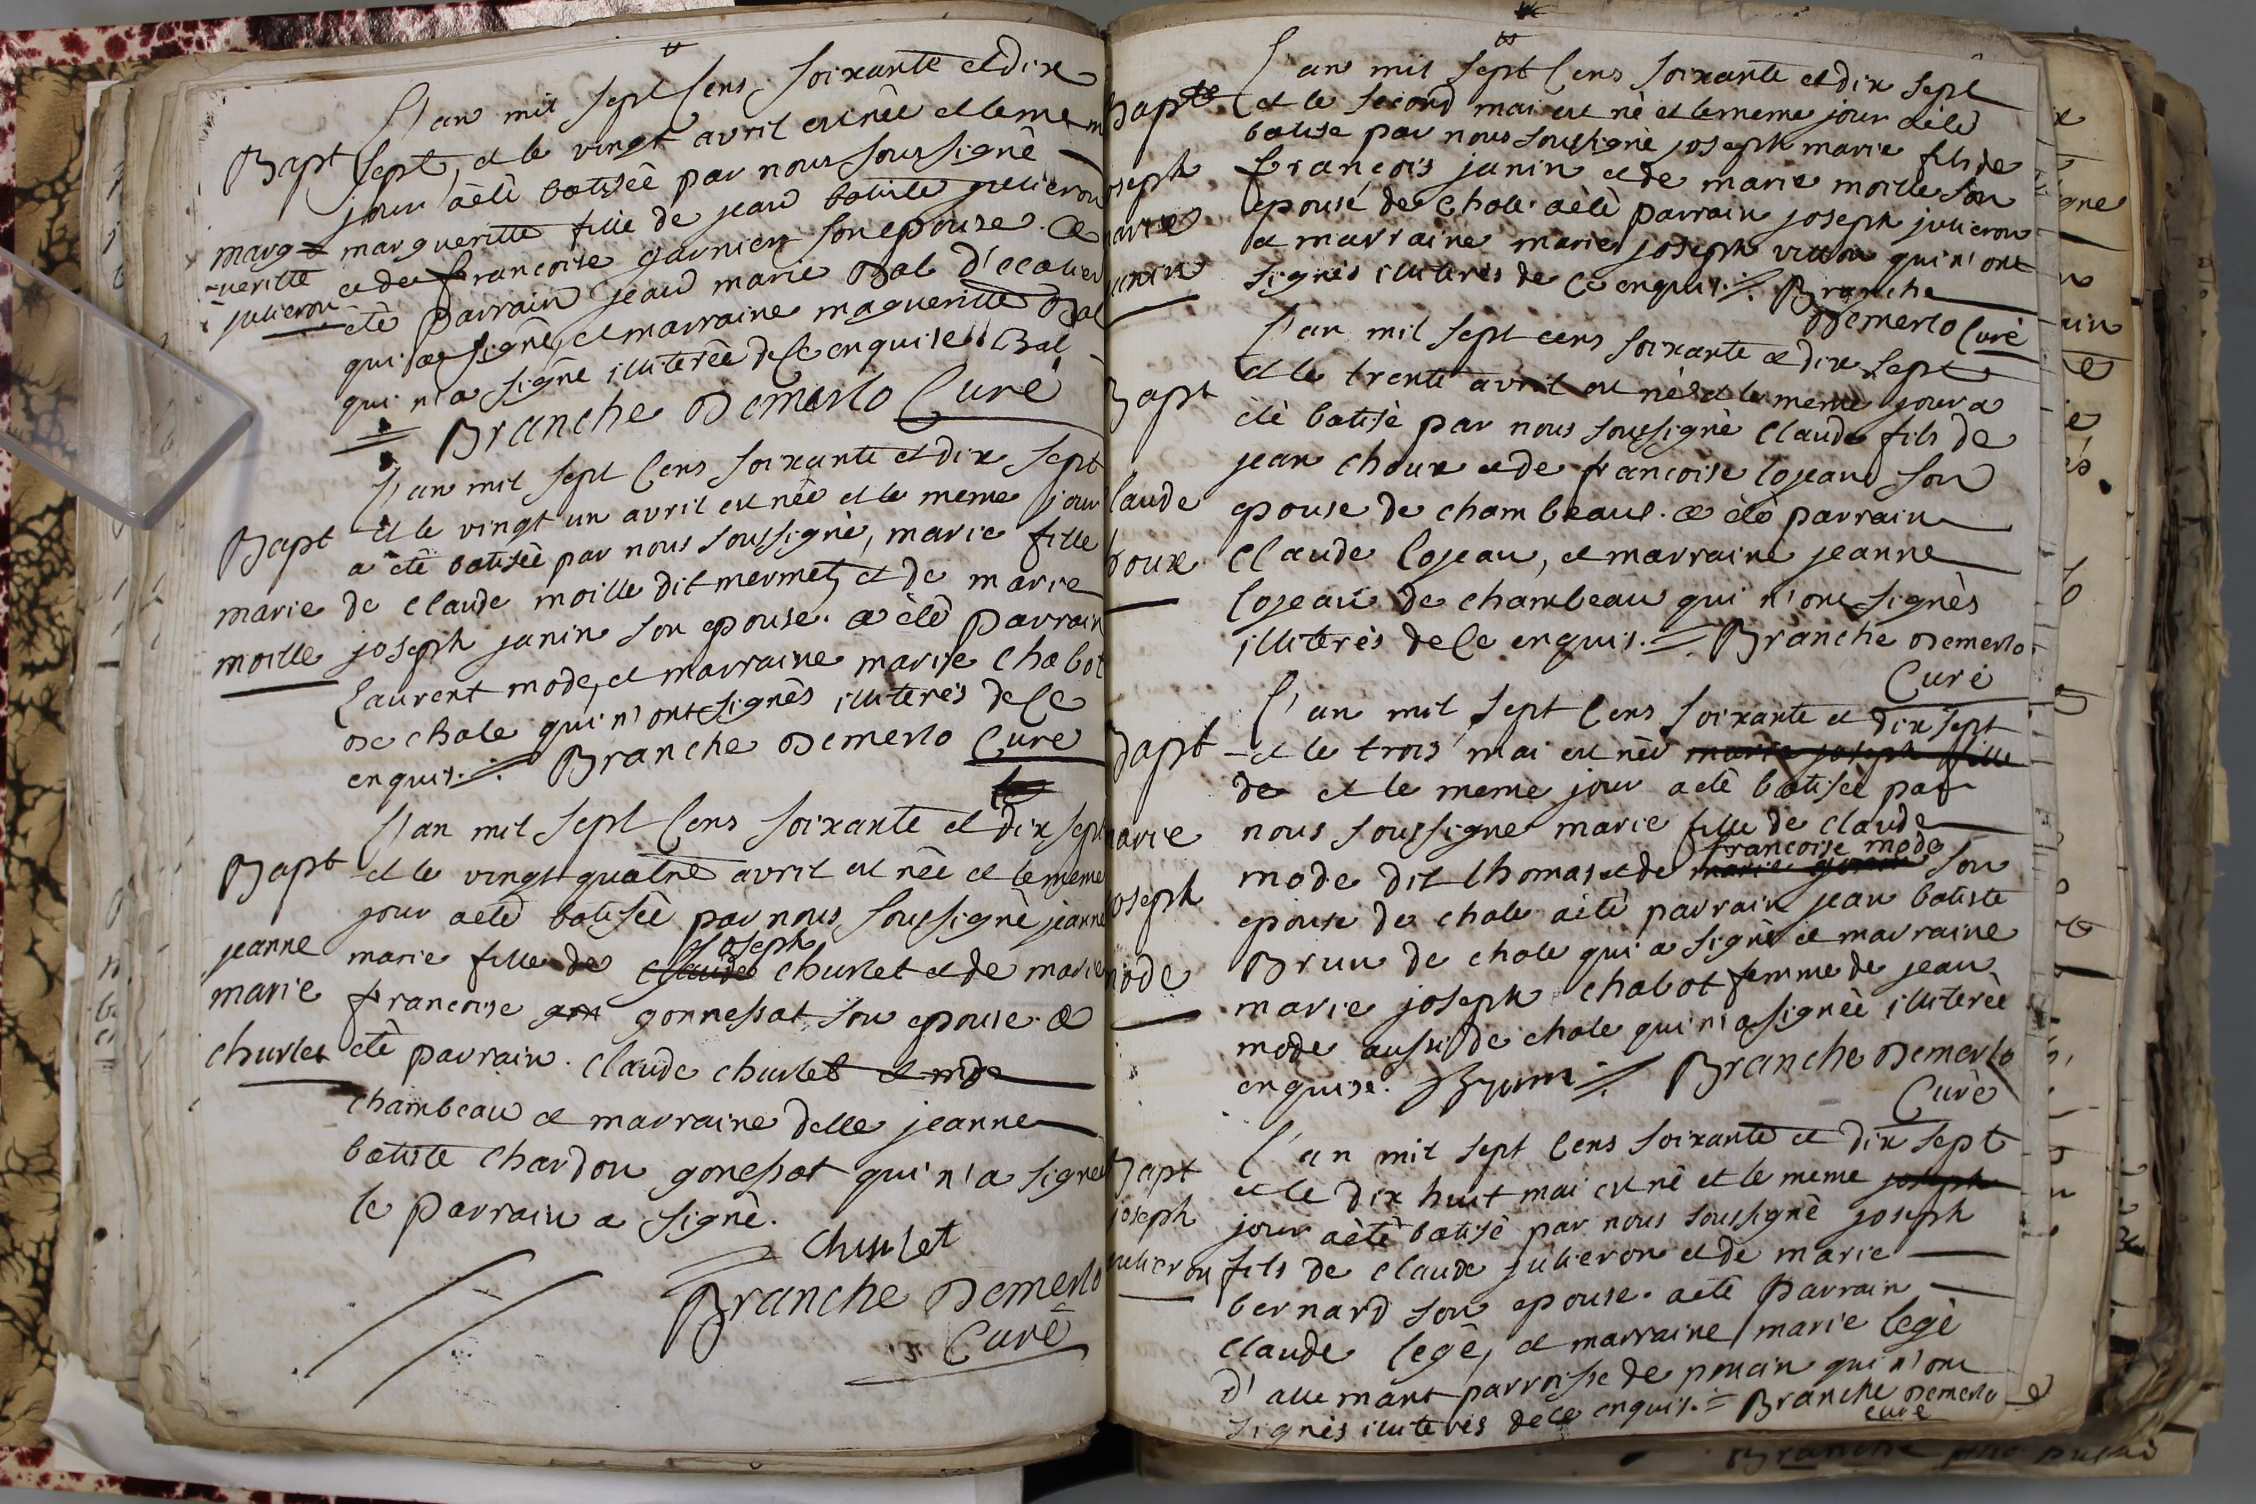 L'an mil sept Cens soixante et dix
Bapt sept, et le vingt avril est née et le mem
jour a èté batisèe par nous soussigné
marg= margueritte fille de jean batiste julieron
ueritte et de francoise garnier son epouse. a
julieron été parrain jean marie Bal d'ecalier
qui a signé, et marraine magueritte Bal
qui n'a signé illiterèe de Ce enquise. Bal
Branche Demerlo Curé
L'an mil sept Cens soixante et dix sept
Bapt et le vingt un avril est née et le meme jour
a été batisèe par nous soussigné, marie fille
marie de Claude moille dit mermet, et de marie
moille joseph janin son epouse. a èté parrain
Laurent mode, et marraine marie chabot
de chole qui n'ont signés illiterés de Ce
enquis. Branche Demerlo Curé
L'an mil sept Cens soixante et dix sept
Bapt et le vingt quatre avril est née et le meme
jour a èté batisèe par nous soussigné jeanne
joseph
jeanne marie fille de claude churlet et de marie
marie francoise gon gonnessat son epouse. a
churlet été parrain. Claude churlet et mde
chambeau et marraine delle jeanne
batiste chardon gonessat qui n'a signé
le parrain a signé.
churlet
Branche Demerlo
Curé
L'an mil sept Cens soixante et dix sept
Bapte et le second mai est né et le meme jour a èté
batisé par nous soussigné joseph marie fils de
oseph françois janin et de marie moille son
arie epouse de chole. a èté parrain joseph julieron
anin et marraine marie joseph villon qui n'ont
signés illiterés de Ce enquis. Branche
Demerlo Curé
L'an mil sept cens soixante et dix sept
Bapt et le trente avril est né et le meme jour a
été batisé par nous soussigné Claude fils de
jean choux et de francoise lojeau son
laude epouse de chambeau. a èté parrain
houx Claude lojeau, et marraine jeanne
lojeau de chambeau qui n'ont signés
illiterés de Ce enquis. Branche Demerlo
Curé
L'an mil sept Cens soixante et dix sept
Bapt et le trois mai est née marie joseph fille
de et le meme jour a èté batisèe par
arie nous soussigné marie fille de claude
francoise mode
mode dit thomas et de marie son
oseph epouse de chole. a èté parrain jean batiste
ode Brun de chole qui a signé et marraine
marie joseph chabot femme de jean
mode aussi de chole qui n'a signée illiterèe
enquise. Brun Branche Demerlo
Curé
L'an mil sept Cens soixante et dix sept
Bapt et le dix huit mai est né et le meme joseph
joseph jour a èté batisé par nous soussigné joseph
julieron fils de claude julieron et de marie
bernard son epouse. a èté parrain
Claude legé, et marraine marie legé
d'allemant parroisse de poncin qui n'ont
signés illiterés de Ce enquis. Branche Demerlo
curé